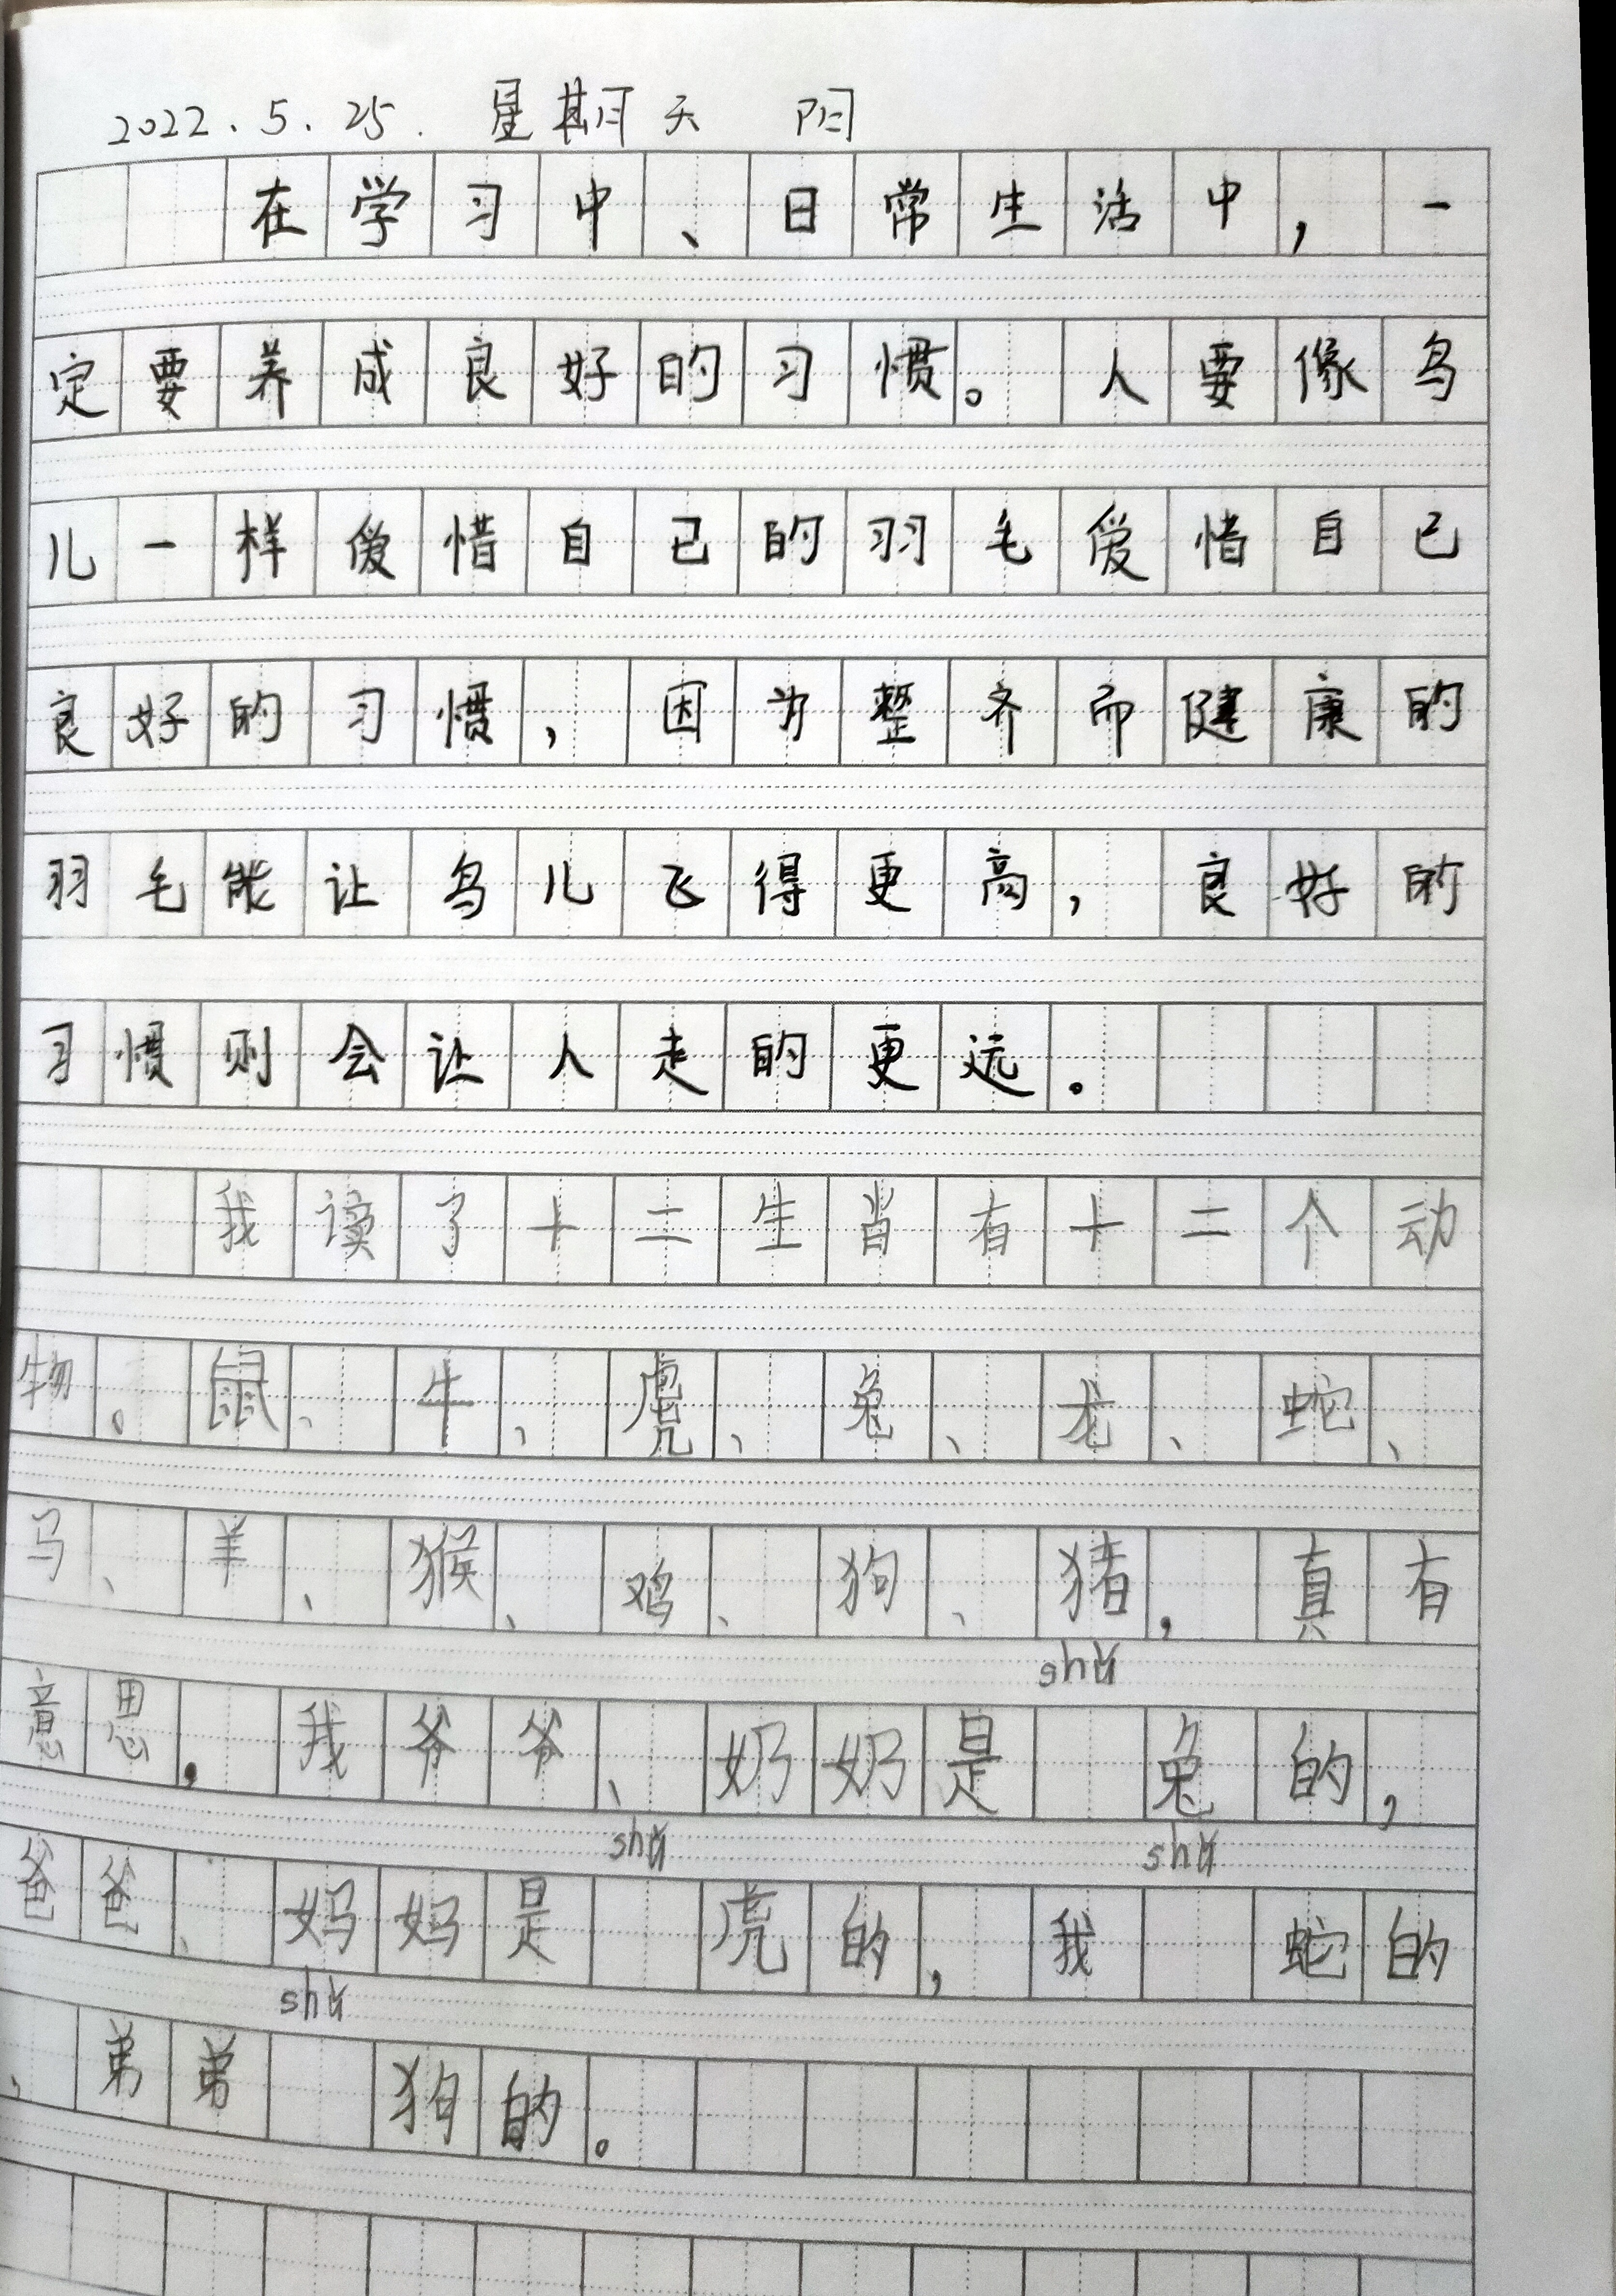 2022.5.25. 星期天 阳
在学习中、日常生活中，一
定要养成良好的习惯。人要像鸟
儿一样爱惜自己的羽毛爱惜自己
良好的习惯，因为整齐而健康的
羽毛能让鸟儿飞得更高，良好的
习惯则会让人走的更远。
我读了十二生肖有十二个动
物。鼠、牛、虎、兔、龙、蛇、
马、羊、猴、鸡、狗、猪，真有
shǔ
意思，我爷爷、奶奶是 兔的，
shǔ shǔ
爸爸、妈妈是 虎的，我 蛇的
shǔ
、弟弟 狗的。